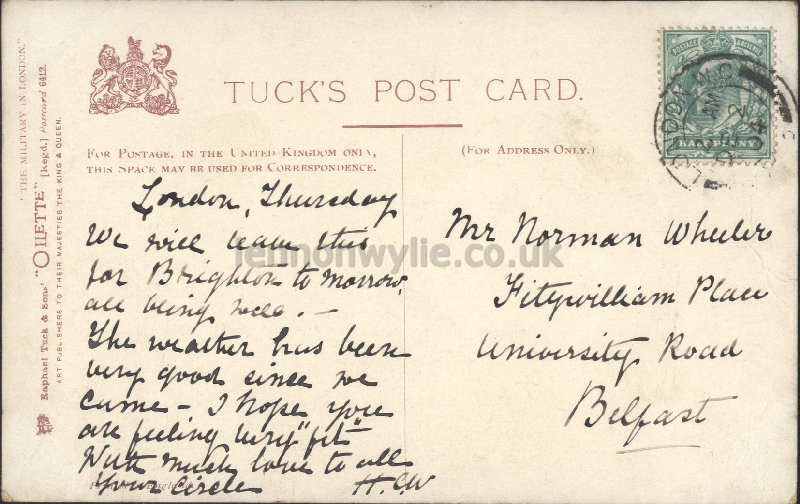 TUCK'S POST CARD.
FOR POSTAGE, IN THE UNITED KINGDOM ONLY,
THIS SPACE MAY BE USED FOR CORRESPONDENCE.
(FOR ADDRESS ONLY.)
London, Thursday
We will leave this
for Brighton to morrow,
all being well. –
The weather has been
very good since we
came – I hope you
are feeling very "fit"
With much love to all
Your Circle H.C.W
Mr Norman Wheeler
Fitzwilliam Place
University Road
Belfast
"THE MILITARY IN LONDON."
Raphael Tuck & Sons' "OILETTE" [Regd.] Postcard 6412.
ART PUBLISHERS TO THEIR MAJESTIES THE KING & QUEEN.
POSTAGE
HALFPENNY
LONDON W.C
AM
2
04
lennonwylie.co.uk